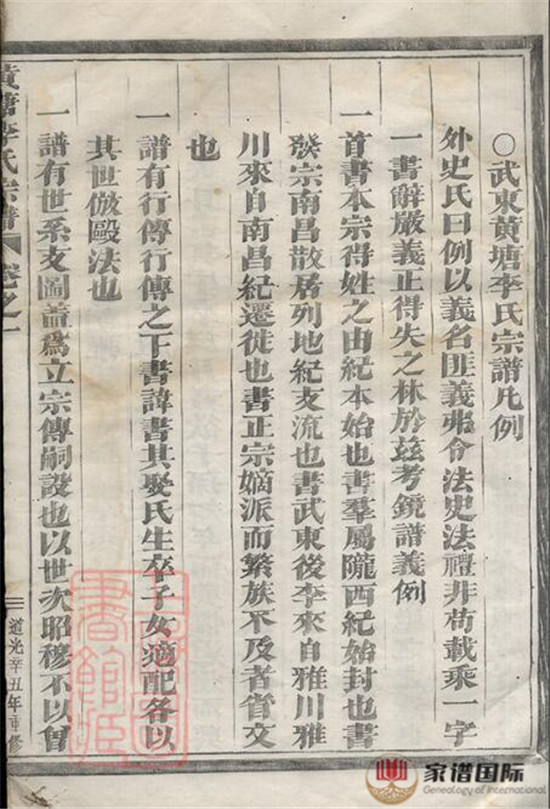 〇武東黄塘李氏宗譜凡例
外史氏曰例以義名匪義弗令法史法禮非苟載乘一字
一書辭嚴義正得失之林於玆考鏡譜義例
一首書本宗得姓之由紀本始也書羣屬隴西紀始封也書
發宗南昌散居列地紀支流也書武東後李來自雅川雅
川來自南昌紀遷徙也書正宗嫡派而繁族不及者省文
也
一譜有行傳行傳之下書諱書其娶氏生卒子女適配各以
其世倣歐法也
一譜有世系支圖蓋爲立宗傳嗣設也以世次昭穆不以曾
黄塘李氏宗譜 卷之一
道光辛丑年重修
家谱国际
Genealogy of International